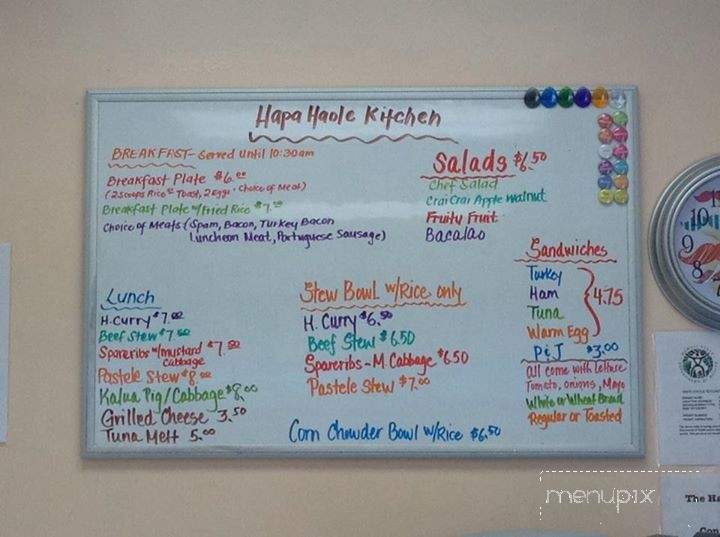 Hapa Haole Kitchen
BREAKFAST - Served until 10:30am
Breakfast Plate $6.00
(2 scoops Rice or Toast, 2 Eggs, Choice of Meat)
Breakfast Plate w/Fried Rice $7.00
Choice of Meats (Spam, Bacon, Turkey Bacon
Luncheon Meat, Portuguese Sausage)
Salads $6.50
Chef Salad
Crai Crai Apple Walnut
Fruity Fruit
Bacalao
Sandwiches
Turkey
Ham
Tuna
Warm Egg
4.75
P & J $3.00
all come with Lettuce
Tomato, onions, Mayo
White or Wheat Bread
Regular or Toasted
Lunch
H. Curry $7.00
Beef Stew $7.50
Spareribs w/mustard $7.50
Cabbage
Pastele Stew $8.00
Kalua Pig/Cabbage $8.00
Grilled Cheese 3.50
Tuna Melt 5.00
Stew Bowl w/Rice only
H. Curry $6.50
Beef Stew $6.50
Spareribs - M. Cabbage $6.50
Pastele Stew $7.00
Corn Chowder Bowl w/Rice $6.50
9
8
7
The Ha
Con
menupix